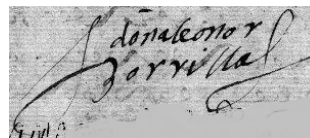 doña leonor
Zorrilla